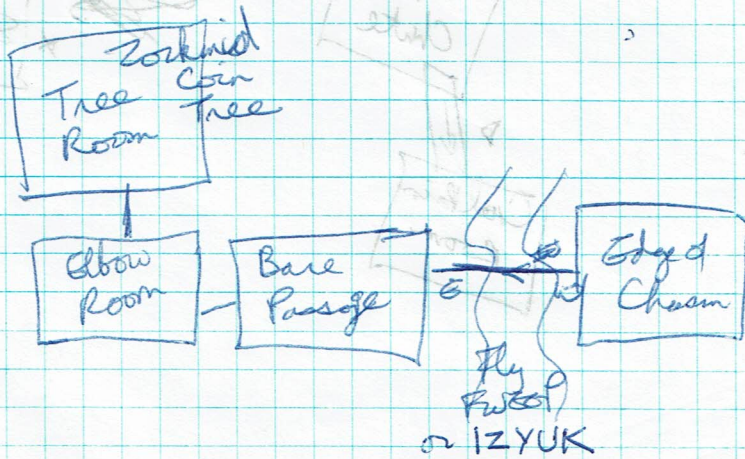 Zorkmid
Coin
Tree
Tree
Room
Elbow
Room
Bare
Passage
E
W
Edge of
Chasm
Fly
or IZYUK
Chute